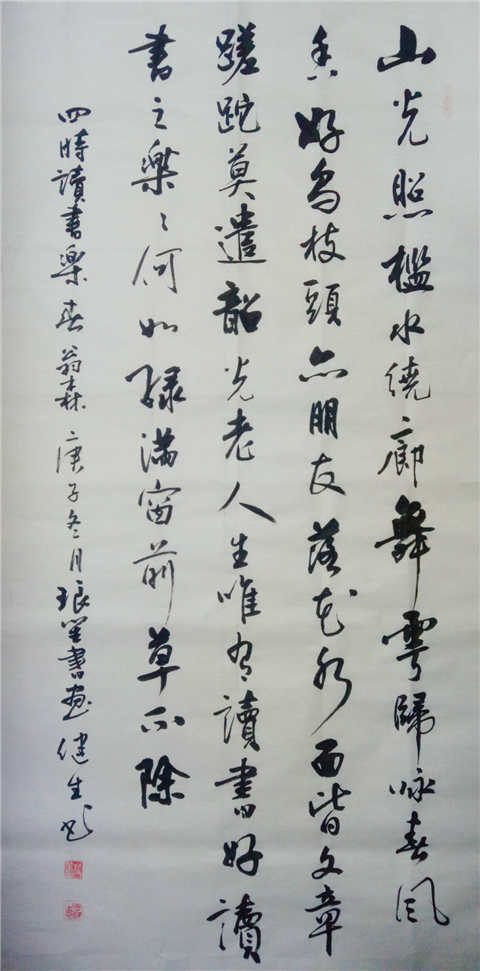 山光照檻水繞廊舞雩歸咏春風
香好鳥枝頭亦朋友落花水面皆文章
蹉跎莫遣韶光老人生唯有讀書好讀
書之樂樂何如綠滿窗前草不除
四時讀書樂春翁森庚子冬月琅笔書画健生书